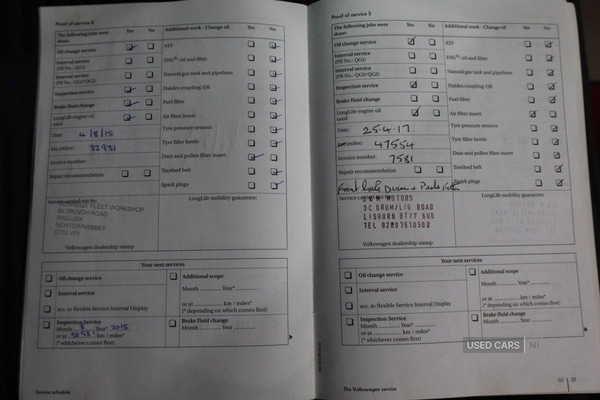 Proof of service 4
The following jobs were done: Yes No
Additional work - Change oil: Yes No
Oil change service
ATF
Interval service
(PR No.: QG1)
DSG®: oil and filter
Interval service
(PR No.: QG0/QG2)
Natural gas tank and pipelines
Inspection service
Haldex coupling: Oil
Brake fluid change
Fuel filter
LongLife engine oil used
Air filter insert
Date: 4/8/15
Tyre pressure sensors
km (miles): 32931
Tyre filler bottle
Invoice number:
Dust and pollen filter insert
Repair recommendation
Toothed belt
Spark plugs
Service carried out by:
LongLife mobility guarantee:
FLEET WORKSHOP
TRENCH ROAD
MALLUSK
NEWTOWNABBEY
Volkswagen dealership stamp
Your next services
Oil change service
Additional scope
Month Year*
Interval service
or at km / miles*
acc. to flexible Service Interval Display
(* depending on which comes first)
Inspection Service
Month 8 Year* 2015
or at km / miles*
(* whichever comes first)
Brake fluid change
Month Year*
Service schedule
Proof of service 5
The following jobs were done: Yes No
Additional work - Change oil: Yes No
Oil change service
ATF
Interval service
(PR No.: QG1)
DSG®: oil and filter
Interval service
(PR No.: QG0/QG2)
Natural gas tank and pipelines
Inspection service
Haldex coupling: Oil
Brake fluid change
Fuel filter
LongLife engine oil used
Air filter insert
Date: 25.4.17.
Tyre pressure sensors
km (miles): 47554
Tyre filler bottle
Invoice number: 7581
Dust and pollen filter insert
Repair recommendation
Toothed belt
Spark plugs
Service carried out by:
LongLife mobility guarantee:
MOTORS
3C DRUMLIG ROAD
LISBURN BT27 6UD
TEL 02897510500
Volkswagen dealership stamp
Your next services
Oil change service
Additional scope
Month Year*
Interval service
or at km / miles*
acc. to flexible Service Interval Display
(* depending on which comes first)
Inspection Service
Month Year*
or at km / miles*
(* whichever comes first)
Brake fluid change
Month Year*
The Volkswagen service
31
USED CARS NI